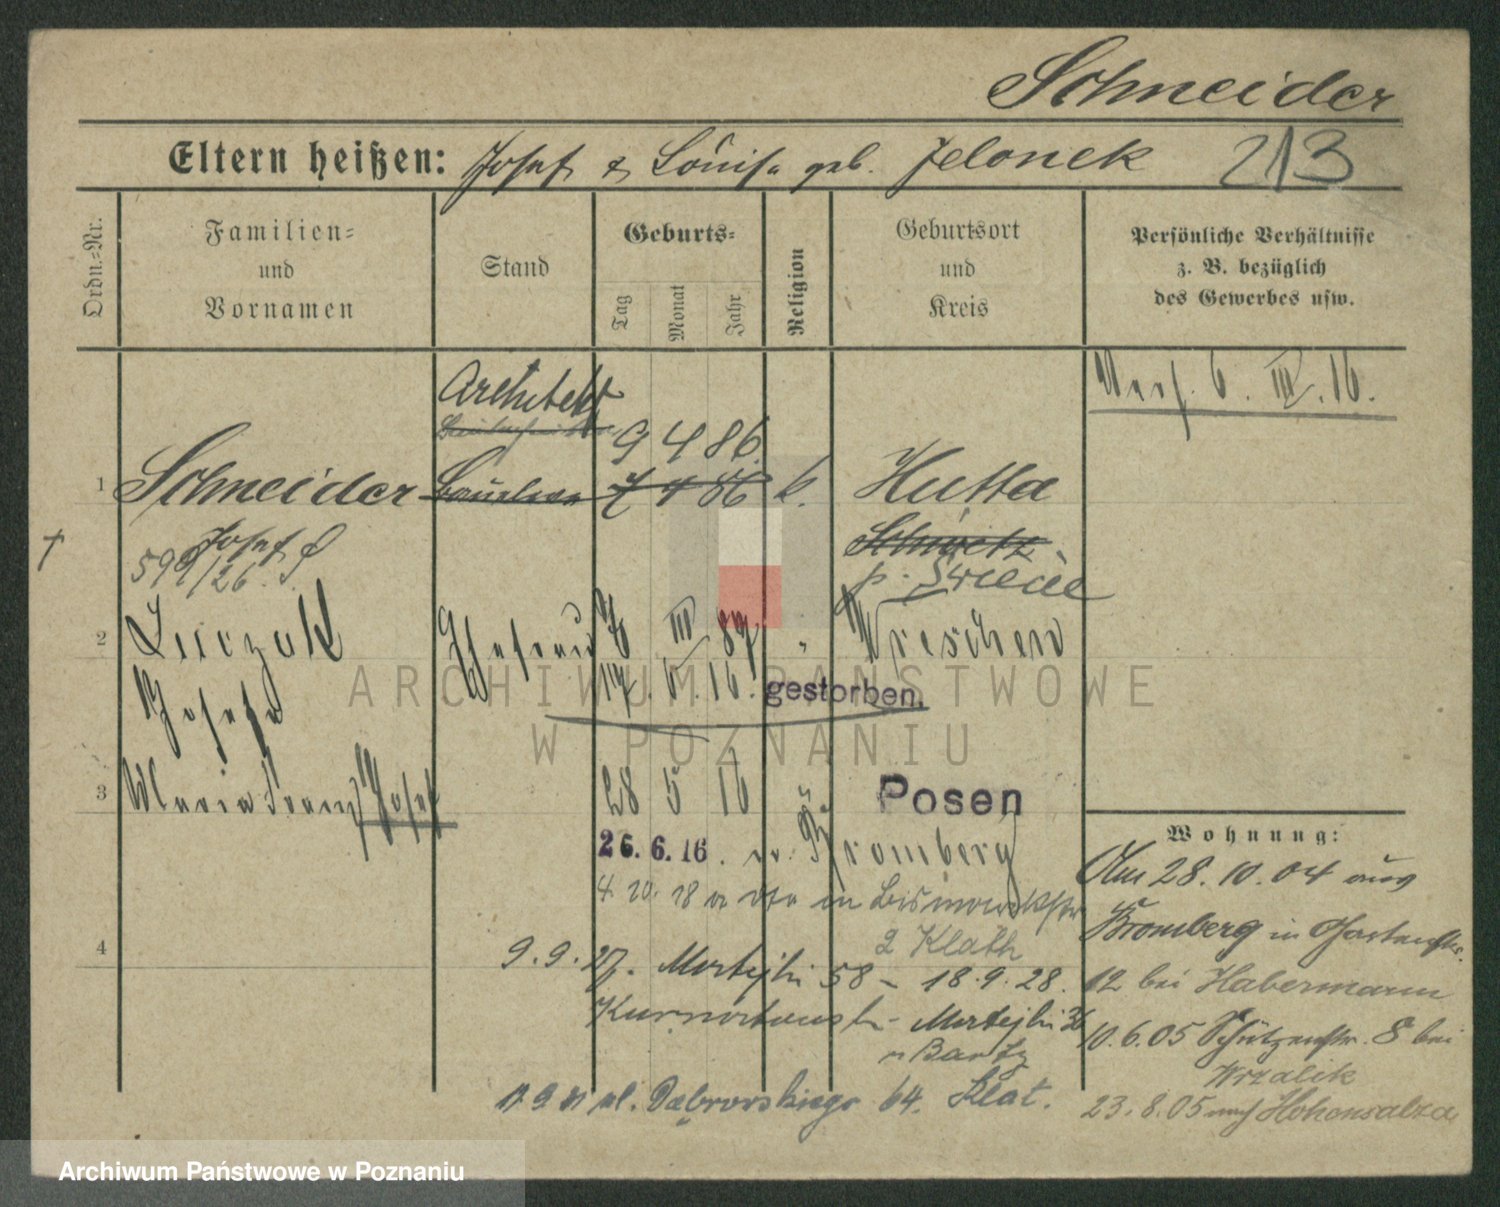 Schneider
Eltern heißen: Josef & Louise geb. Jelonek 213
Ordn.-Nr.
Familien-
und
Vornamen
Stand
Geburts-
Tag
Monat
Jahr
Religion
Geburtsort
und
Kreis
Persönliche Verhältnisse
z. B. bezüglich
des Gewerbes usw.
6. III. 16.
Architekt
9 4 86.
1 Schneider 7 4 86 k. Hutta
Josef
Schwetz
599/26.
p.
2 Ehefrau 7 III 89 " Wreschen
Josefa
17. 6. 16. gestorben.
3 Maria Franz Josef 28 5 16 Posen
26. 6. 16. n. Bromberg
4. 10. 18 in Bismarckstr
2 Klath
4
9. 9. 27. 58 - 18. 9. 28.
36
Bartz
pl. Dąbrowskiego 64. Klat.
Wohnung:
Am 28. 10. 04 aus
Bromberg in Gartenstr.
12 bei Habermann
10. 6. 05 Schützenstr. 8 bei
Wrzalik
23. 8. 05 nach Hohensalza
ARCHIWUM PAŃSTWOWE
W POZNANIU
Archiwum Państwowe w Poznaniu